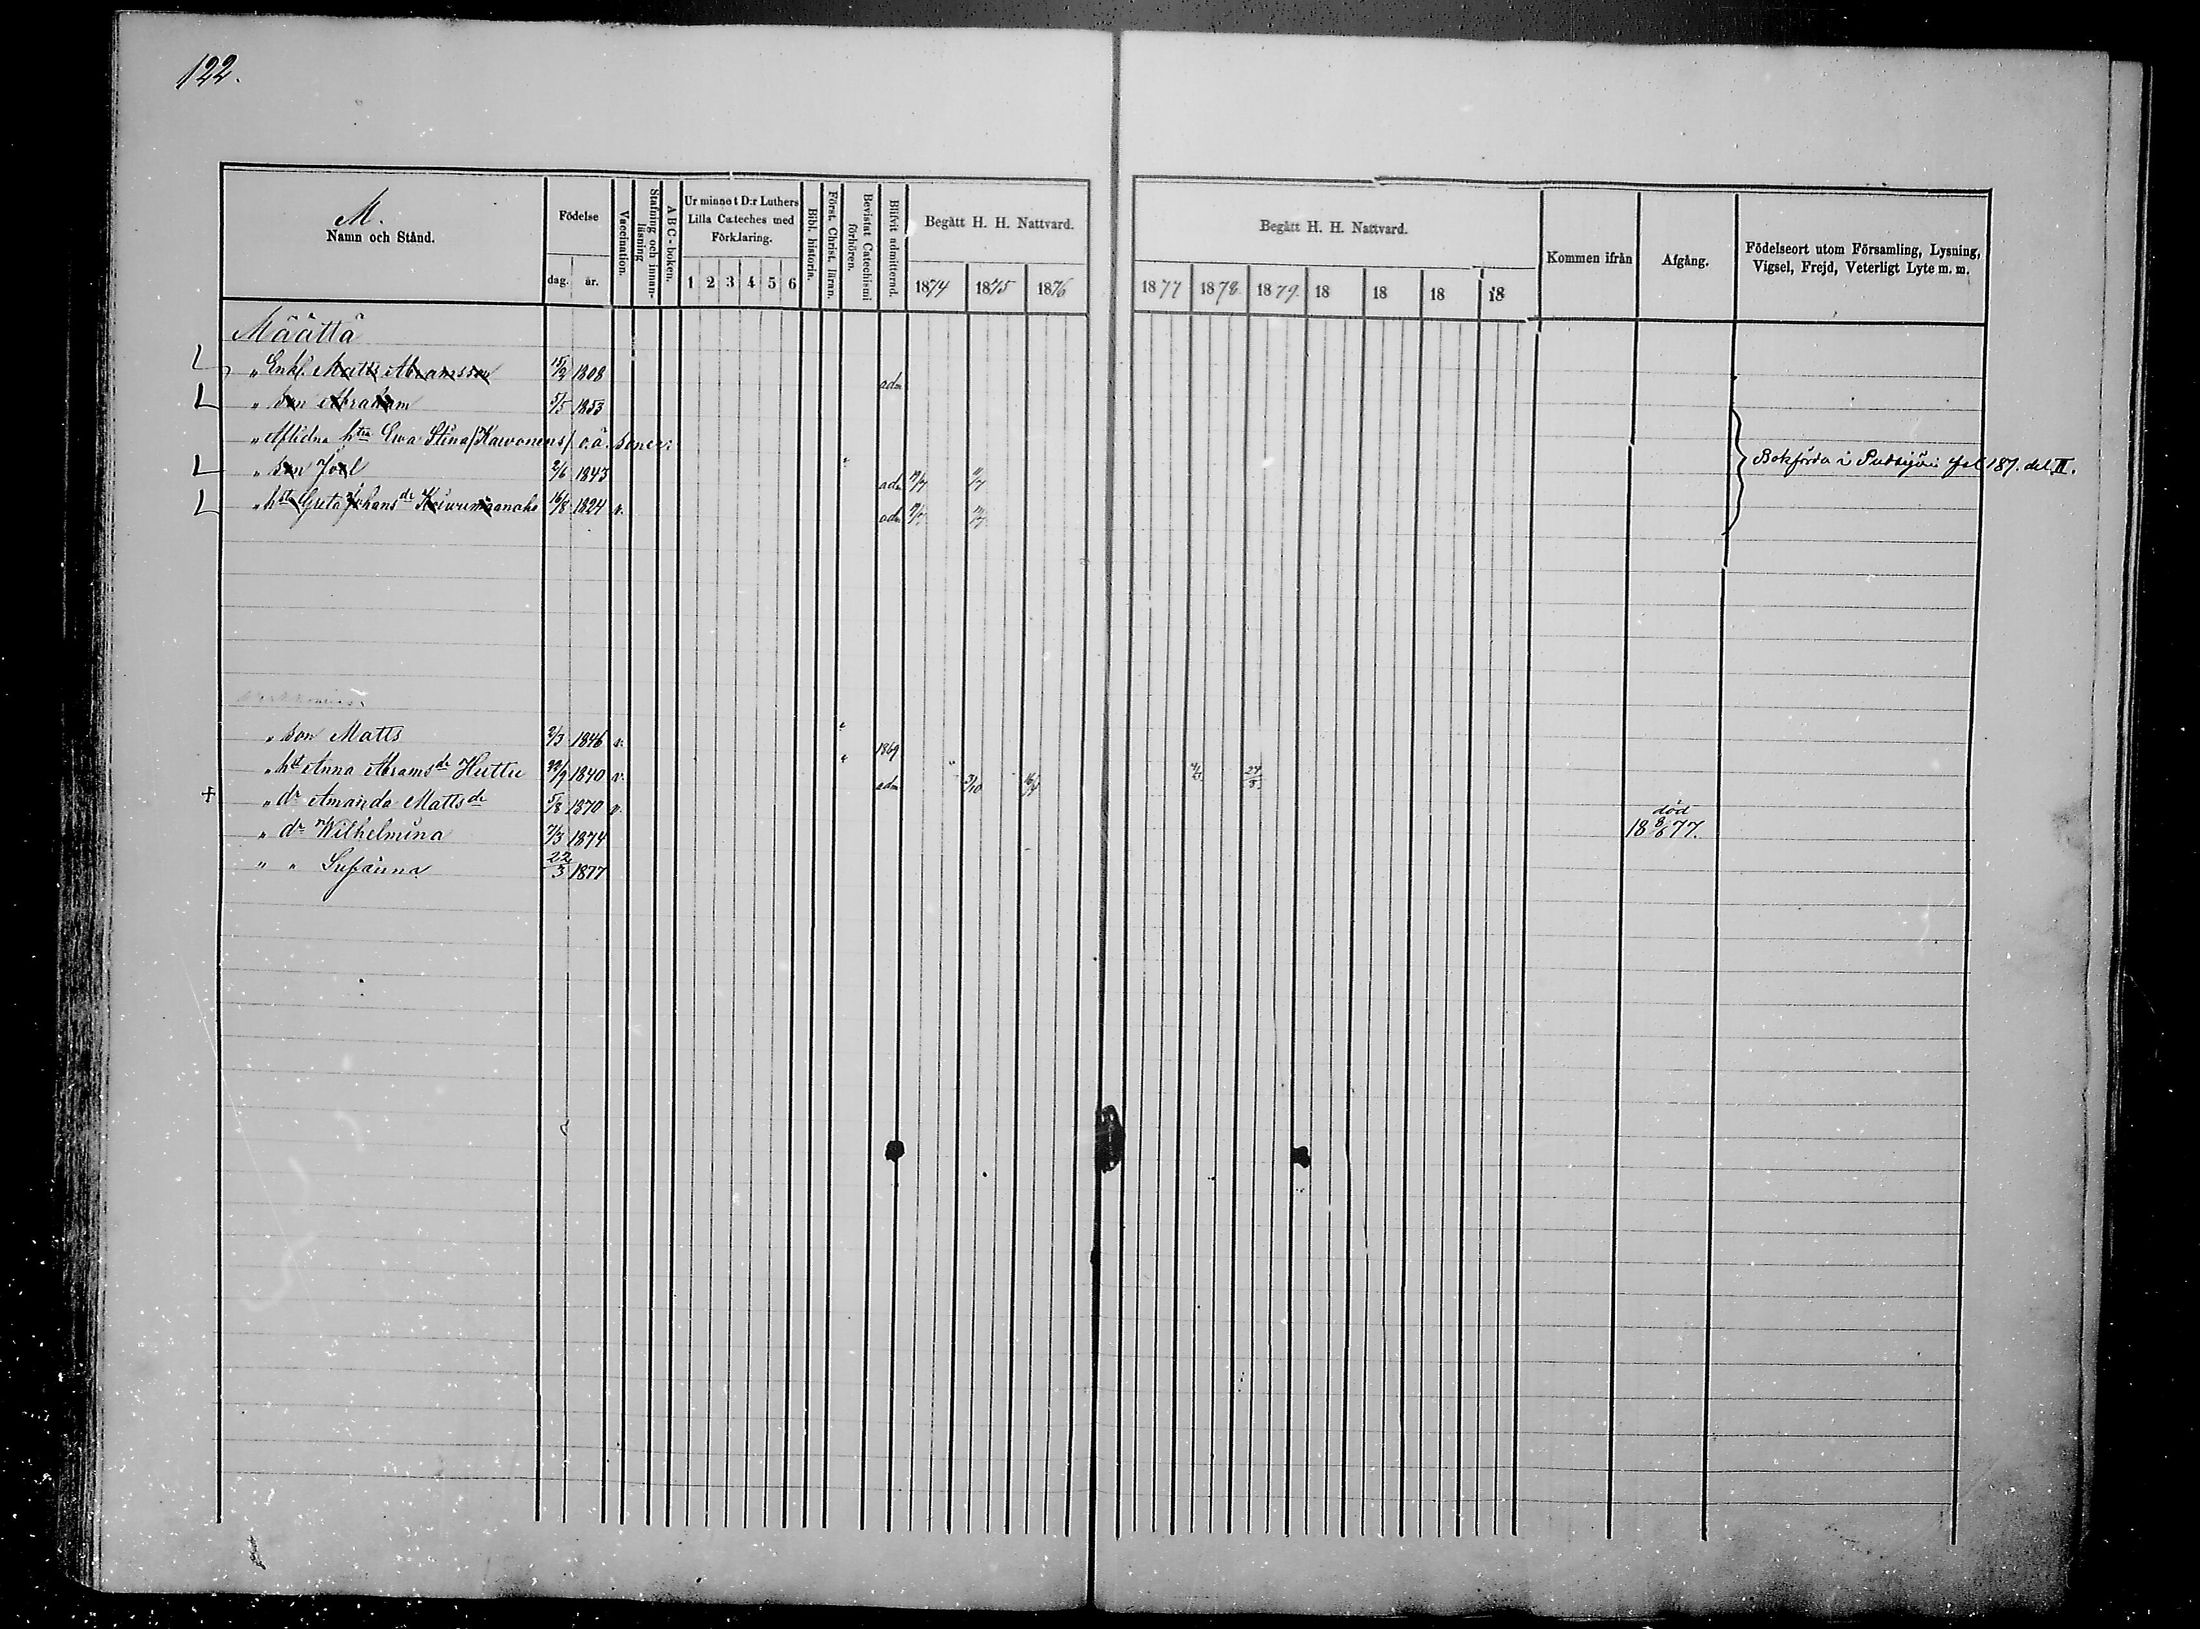 122.
M.
Namn och Stånd.
Födelse
dag. år.
Vaccination.
Stafning och innanläsning
A B C-boken.
Ur minnet D:r Luthers Lilla Cateches med Förklaring.
1 2 3 4 5 6
Bibl. historia.
Först. Christ. läran.
Bevistat Catechismi förhören.
Blifvit admitterad.
Begått H. H. Nattvard.
1874 1875 1876
Begått H. H. Nattvard.
1877 1878. 1879. 18 18 18 18
Kommen ifrån
Afgång.
Födelseort utom Församling, Lysning, Vigsel, Frejd, Veterligt Lyte m. m.
Määttä
" Enkl. Matts Abramsson 1808 adm
" son Abraham 5/5 1853
" Aflidna hstru Ewa Stina /Kawonens/ o.ä. soner:
" son Joel 2/6 1843 adm
" hstru Greta Johansdr 16/8 1824 v. adm
Bokförda i Pudasjärvi fol 187. del II.
" son Matts 2/3 1846 v. 1869
" h Anna Abramsdr Huttu /9 1840 v. adm 3/10 24/8
+ " dr Amanda Mattsdr 5/8 1870 v. död 18 8/6 77.
" dr Wilhelmina 7/3 1874
" " Susanna 22/3 1877